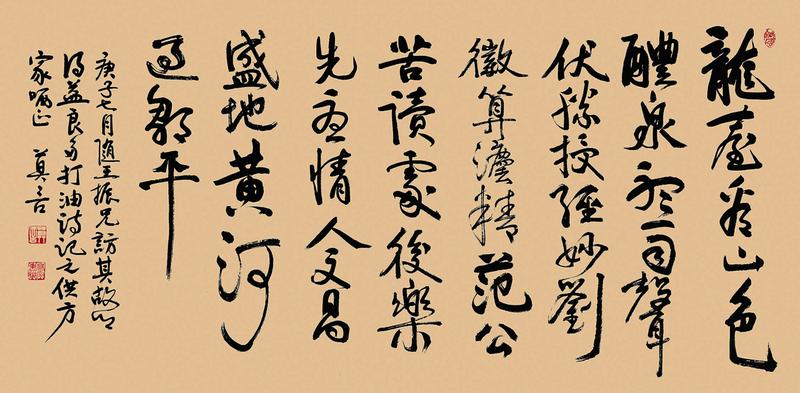 龍臺看山色
醴泉聽雨聲
伏勝授經妙劉
徽算灋精范公
苦讀處後樂
先憂情人文昌
盛地黄河
過鄒平
庚子七月随王振兄訪其故鄉
得益良多打油詩记之供方
家哂正 莫言